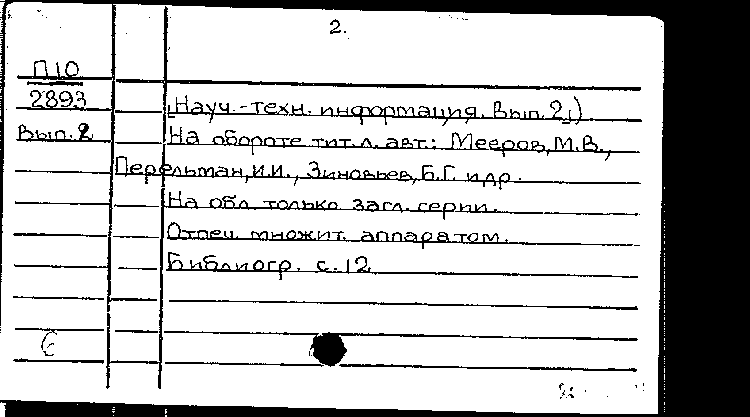 2.
П10
2893
Вып.2
Науч.-техн. информация. Вып.2.)
На обороте тит.л. авт.: Мееров, М.В.,
Перельман, И.И., Зиновьев, Б.Г. и др.
На обл. только загл. серии.
Отпеч. множит. аппаратом.
Библиогр. с.12